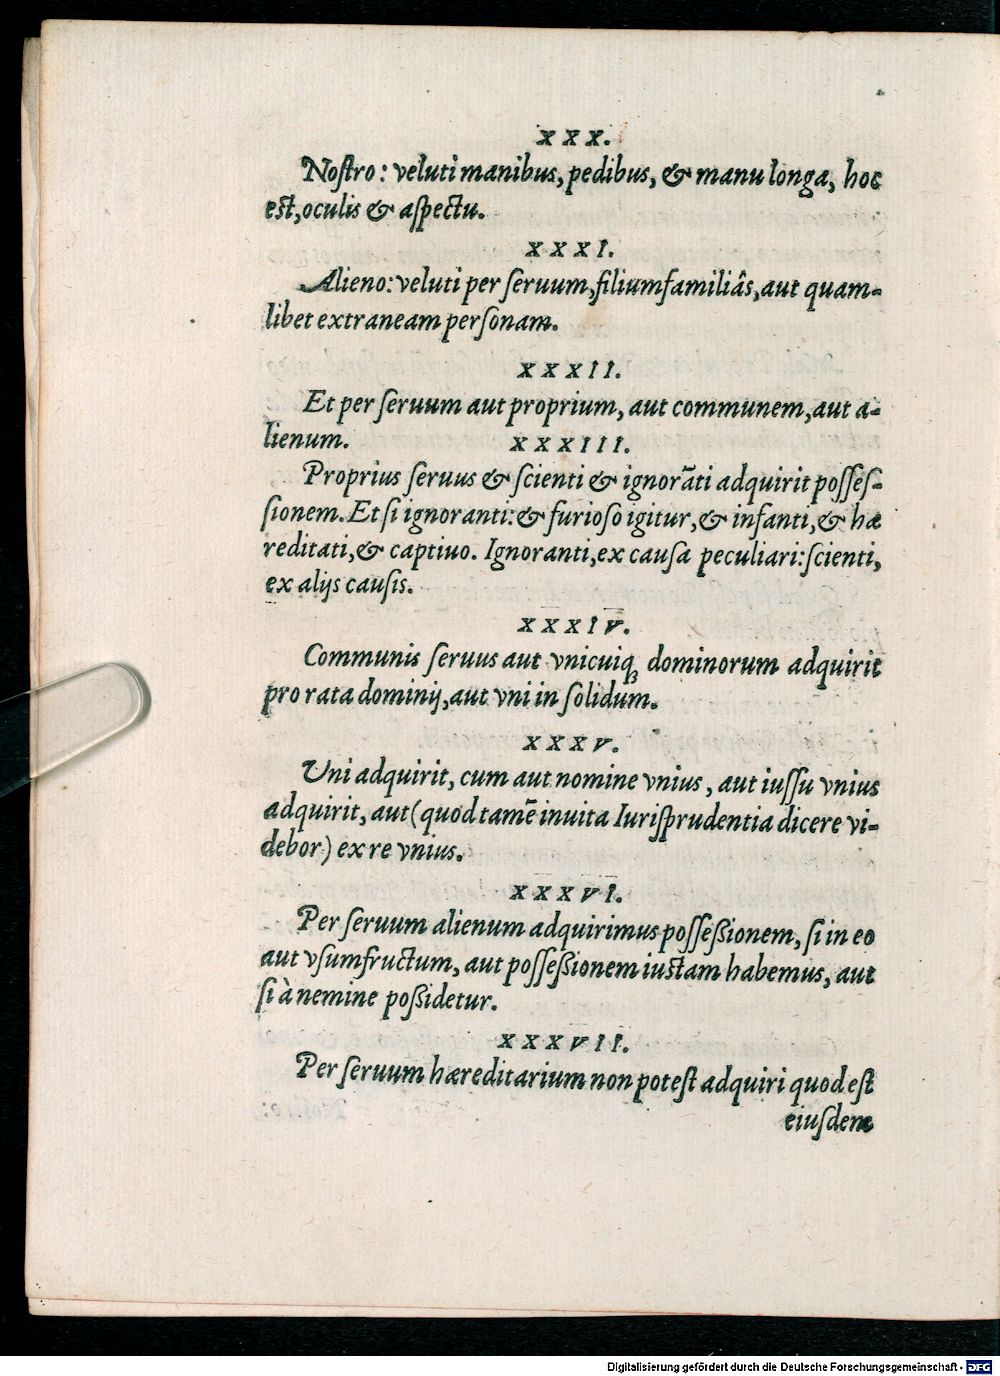 XXX.
Noſtro: veluti manibus, pedibus, & manu longa, hoc
eſt, oculis & aſpectu.
XXXI.
Alieno: veluti per ſeruum, filiumfamiliâs, aut quam-
libet extraneam perſonam.
XXXII.
Et per ſeruum aut proprium, aut communem, aut a-
lienum.
XXXIII.
Proprius ſeruus & ſcienti & ignorāti adquirit poſſeſ-
ſionem. Et ſi ignoranti: & furioſo igitur, & infanti, & hæ
reditati, & captiuo. Ignoranti, ex cauſa peculiari: ſcienti,
ex alijs cauſis.
XXXIV.
Communis ſeruus aut vnicuiq; dominorum adquirit
pro rata dominij, aut vni in ſolidum.
XXXV.
Uni adquirit, cum aut nomine vnius, aut iuſſu vnius
adquirit, aut (quod tamē inuita Iuriſprudentia dicere vi-
debor) ex re vnius.
XXXVI.
Per ſeruum alienum adquirimus poſſeßionem, ſi in eo
aut vſumfructum, aut poſſeßionem iuſtam habemus, aut
ſi à nemine poßidetur.
XXXVII.
Per ſeruum hæreditarium non poteſt adquiri quod eſt
eiuſdem
Digitalisierung gefördert durch die Deutsche Forschungsgemeinschaft - DFG